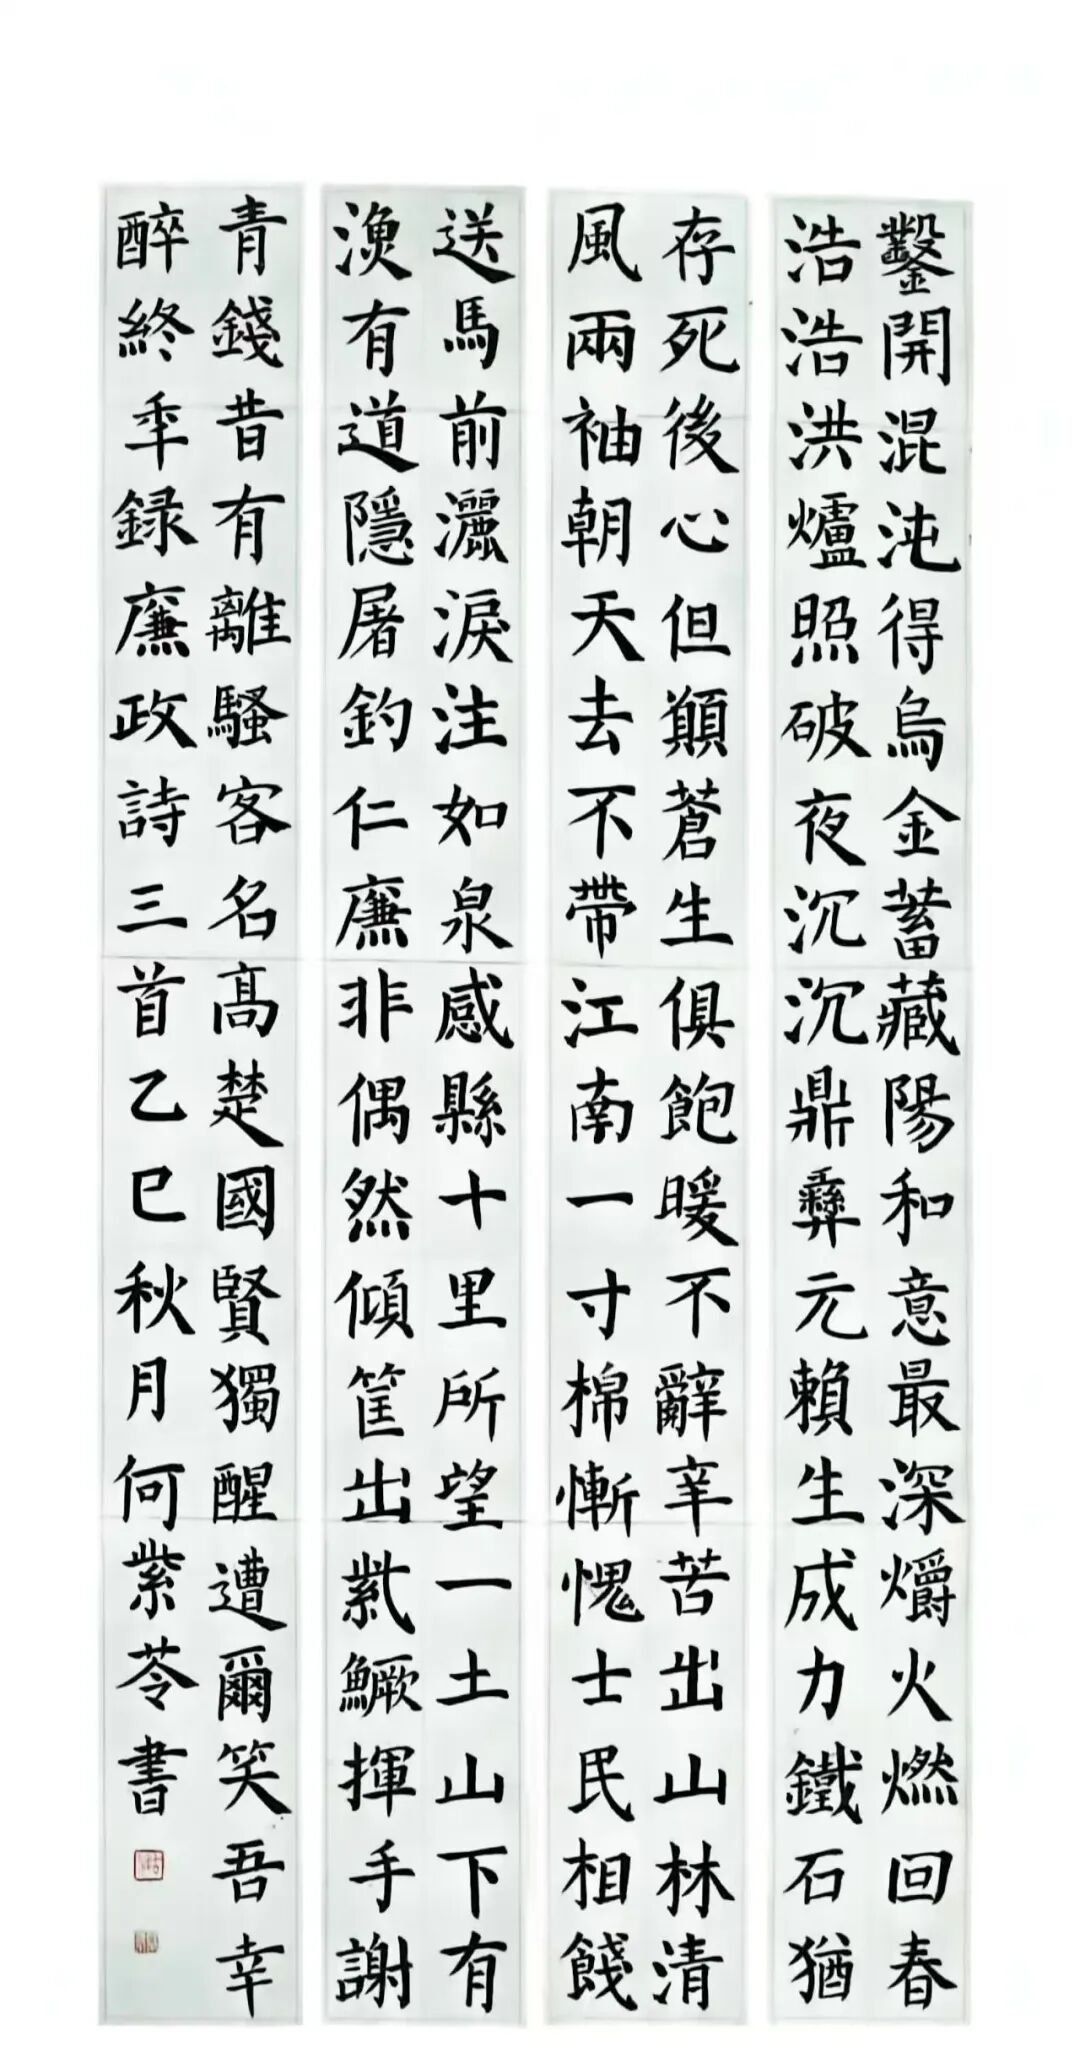 鑿開混沌得烏金蓄藏陽和意最深爝火燃回春
浩浩洪爐照破夜沉沉鼎彝元賴生成力鐵石猶
存死後心但願蒼生俱飽暖不辭辛苦出山林清
風兩袖朝天去不帶江南一寸棉慚愧士民相餞
送馬前灑淚注如泉感縣十里所望一土山下有
漁有道隱屠釣仁廉非偶然傾筐出紫鱖揮手謝
青錢昔有離騷客名髙楚國賢獨醒遭爾笑吾幸
醉終年録廉政詩三首乙巳秋月何紫苓書